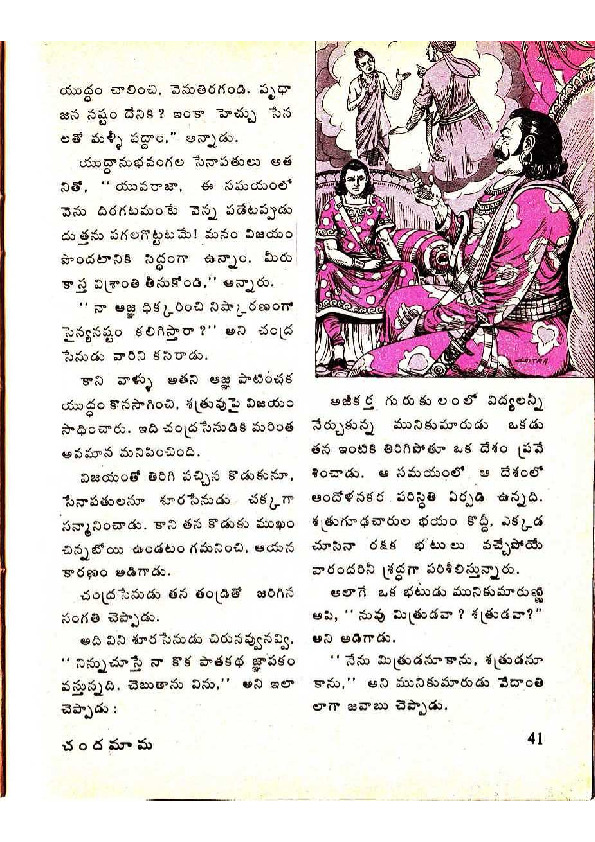 యుద్ధం చాలించి, వెనుతిరగండి. వృథా
జన నష్టం దేనికి? ఇంకా హెచ్చు సేన
లతో మళ్ళీ వద్దాం," అన్నాడు.
యుద్ధానుభవంగల సేనాపతులు అత
నితో, "యువరాజా, ఈ సమయంలో
వెను దిరగటమంటే వెన్న పడేటప్పుడు
దుత్తను పగలగొట్టటమే! మనం విజయం
పొందటానికి సిద్ధంగా ఉన్నాం. మీరు
కాస్త విశ్రాంతి తీసుకోండి," అన్నారు.
"నా ఆజ్ఞ ధిక్కరించి నిష్కారణంగా
సైన్యనష్టం కలిగిస్తారా?" అని చంద్ర
సేనుడు వారిని కసిరాడు.
కాని వాళ్ళు అతని ఆజ్ఞ పాటించక
యుద్ధం కొనసాగించి, శత్రువుపై విజయం
సాధించారు. ఇది చంద్రసేనుడికి మరింత
అవమాన మనిపించింది.
విజయంతో తిరిగి వచ్చిన కొడుకునూ,
సేనాపతులనూ శూరసేనుడు చక్కగా
సన్మానించాడు. కాని తన కొడుకు ముఖం
చిన్నబోయి ఉండటం గమనించి, ఆయన
కారణం అడిగాడు.
చంద్రసేనుడు తన తండ్రితో జరిగిన
సంగతి చెప్పాడు.
అది విని శూరసేనుడు చిరునవ్వునవ్వి,
"నిన్నుచూస్తే నా కొక పాతకథ జ్ఞాపకం
వస్తున్నది. చెబుతాను విను," అని ఇలా
చెప్పాడు:
అజీకర్త గురుకులంలో విద్యలన్నీ
నేర్చుకున్న మునికుమారుడు ఒకడు
తన ఇంటికి తిరిగిపోతూ ఒక దేశం ప్రవే
శించాడు. ఆ సమయంలో ఆ దేశంలో
ఆందోళనకర పరిస్థితి ఏర్పడి ఉన్నది.
శత్రుగూఢచారుల భయం కొద్దీ, ఎక్కడ
చూసినా రక్షక భటులు వచ్చేపోయే
వారందరినీ శ్రద్ధగా పరిశీలిస్తున్నారు.
అలాగే ఒక భటుడు మునికుమారుణ్ణి
ఆపి, "నువు మిత్రుడవా? శత్రుడవా?"
అని అడిగాడు.
"నేను మిత్రుడనూకాను, శత్రుడనూ
కాను," అని మునికుమారుడు వేదాంతి
లాగా జవాబు చెప్పాడు.
చందమామ
41